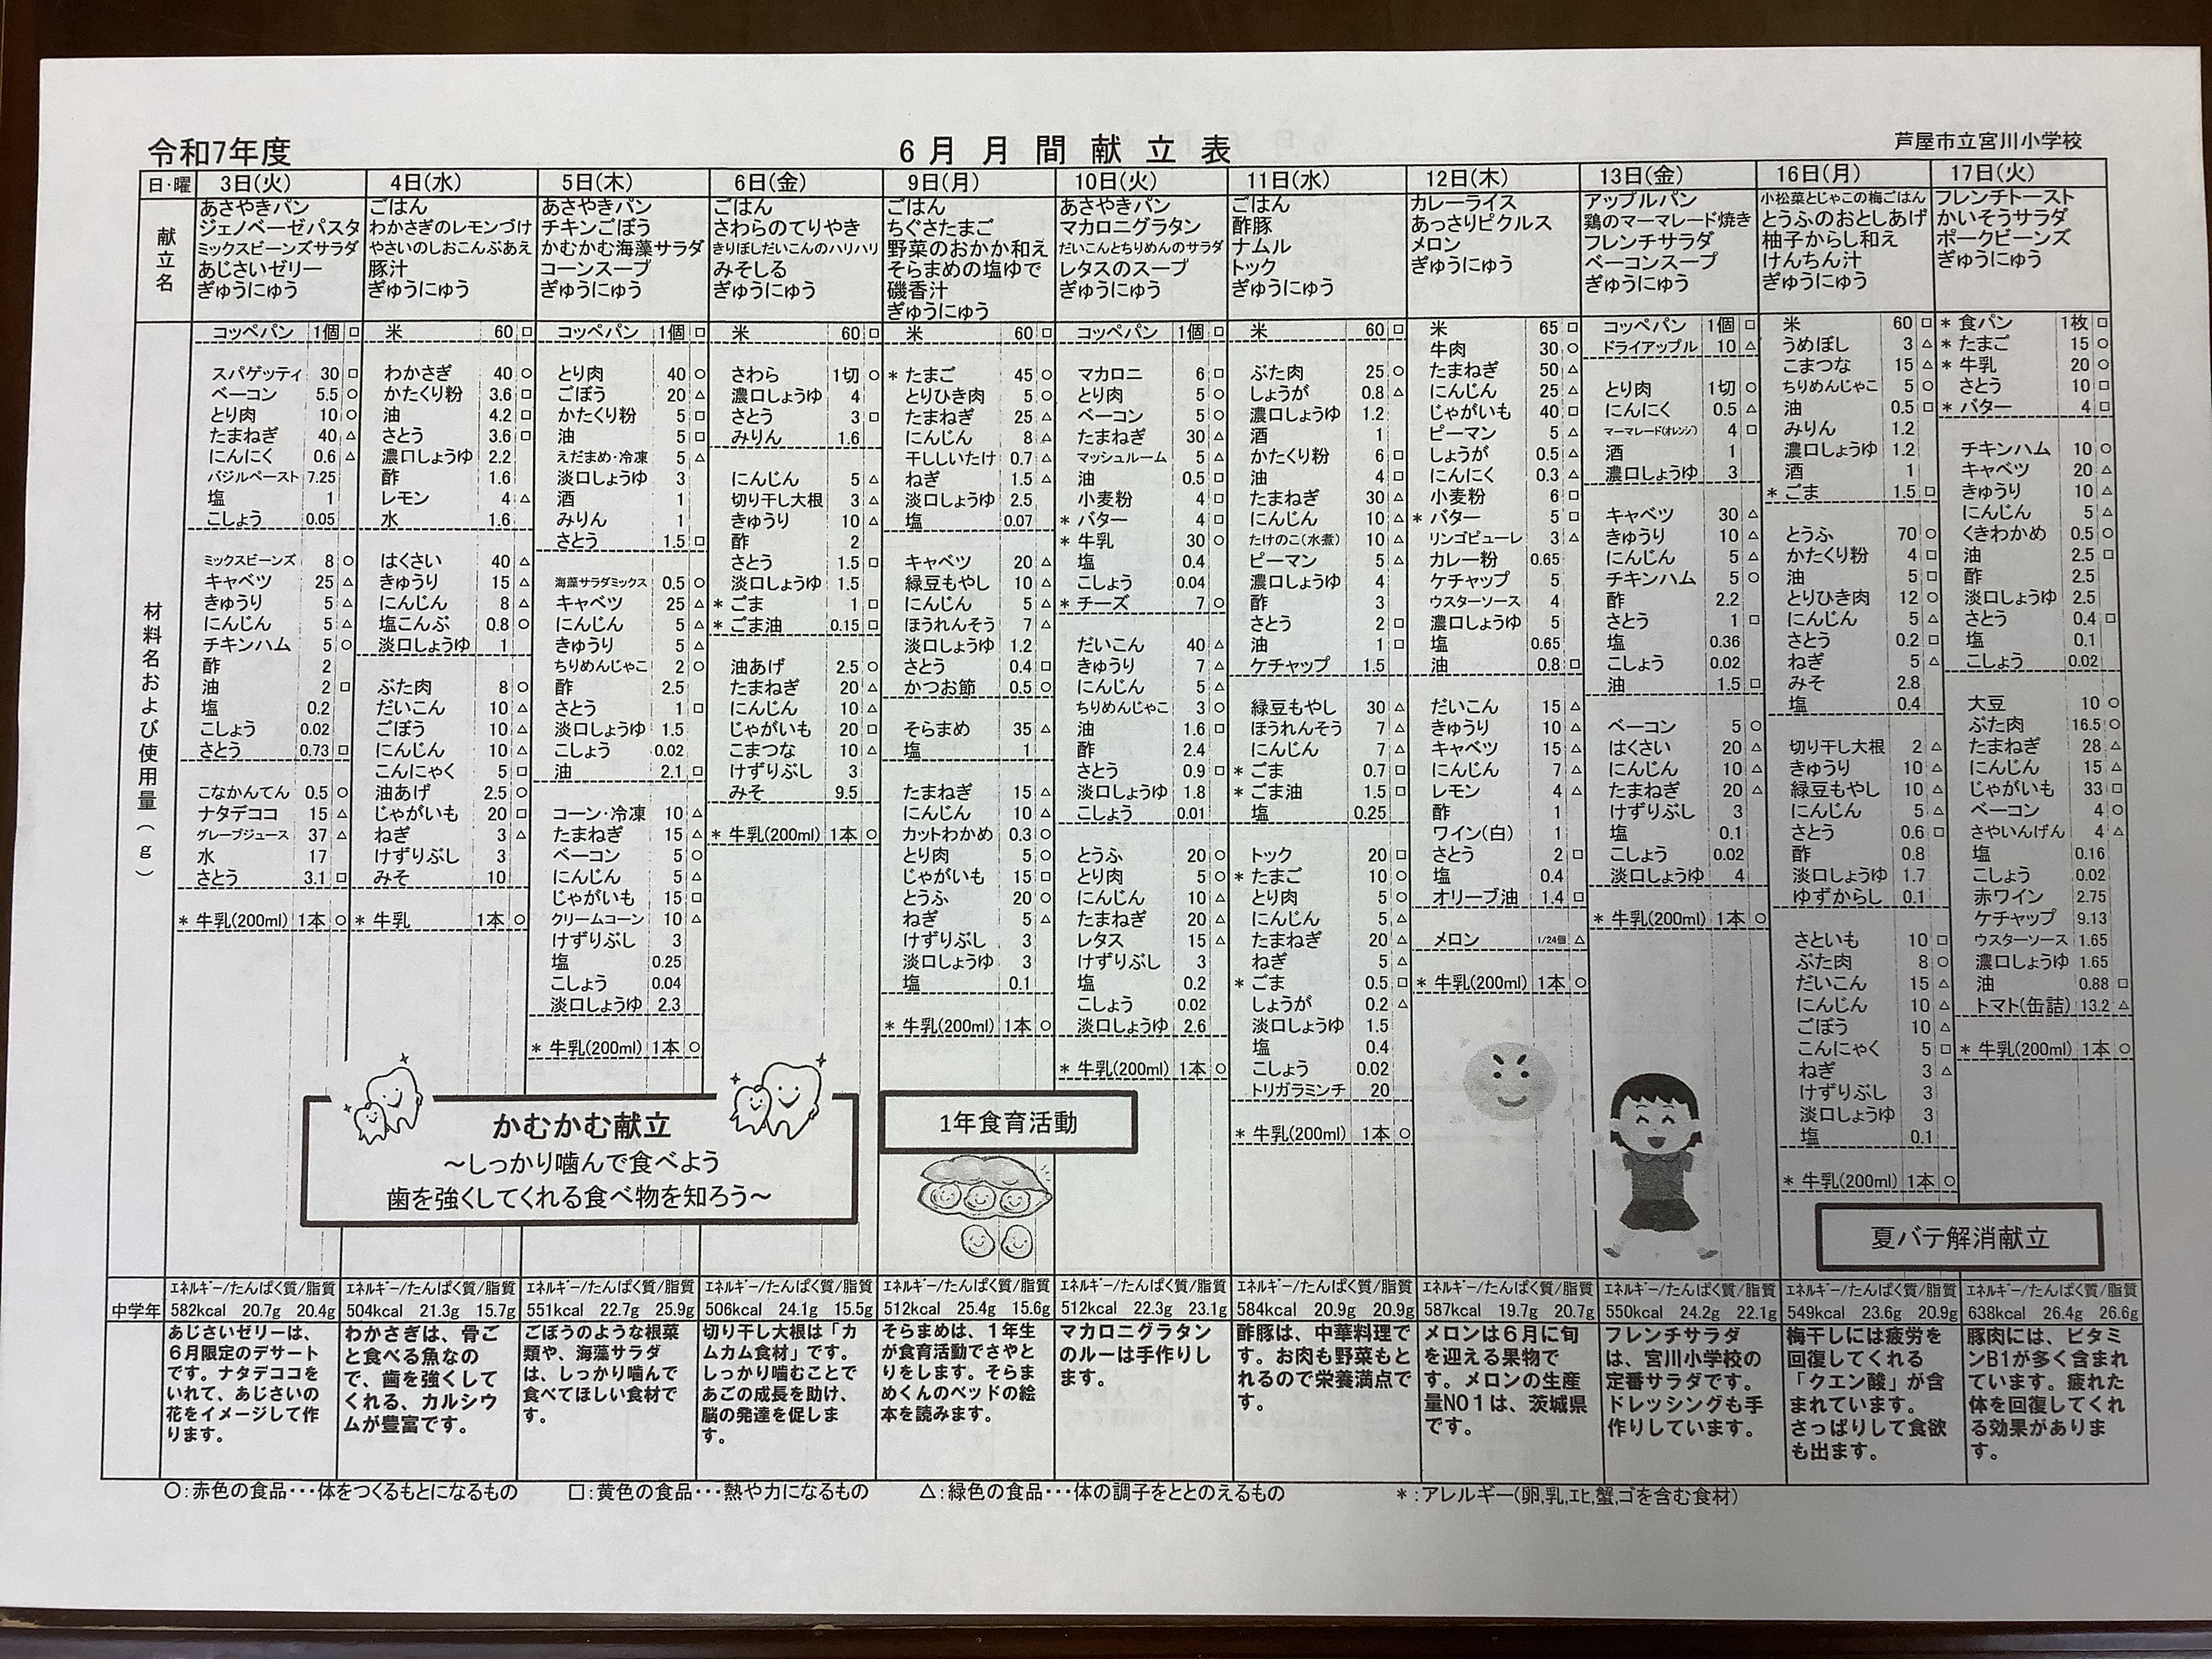 令和7年度
6月 月 間 献 立 表
芦屋市立宮川小学校
日・曜
3日(火)
4日(水)
5日(木)
6日(金)
9日(月)
10日(火)
11日(水)
12日(木)
13日(金)
16日(月)
17日(火)
献立名
あさやきパン
ジェノベーゼパスタ
ミックスビーンズサラダ
あじさいゼリー
ぎゅうにゅう
ごはん
わかさぎのレモンづけ
やさいのしおこんぶあえ
豚汁
ぎゅうにゅう
あさやきパン
チキンごぼう
かむかむ海藻サラダ
コーンスープ
ぎゅうにゅう
ごはん
さわらのてりやき
きりぼしだいこんのハリハリ
みそしる
ぎゅうにゅう
ごはん
ちぐさたまご
野菜のおかか和え
そらまめの塩ゆで
磯香汁
ぎゅうにゅう
あさやきパン
マカロニグラタン
だいこんとちりめんのサラダ
レタスのスープ
ぎゅうにゅう
ごはん
酢豚
ナムル
トック
ぎゅうにゅう
カレーライス
あっさりピクルス
メロン
ぎゅうにゅう
アップルパン
鶏のマーマレード焼き
フレンチサラダ
ベーコンスープ
ぎゅうにゅう
小松菜とじゃこの梅ごはん
とうふのおとしあげ
柚子からし和え
けんちん汁
ぎゅうにゅう
フレンチトースト
かいそうサラダ
ポークビーンズ
ぎゅうにゅう
材料名および使用量(g)
コッペパン 1個 □
スパゲッティ 30 □
ベーコン 5.5 ○
とり肉 10 ○
たまねぎ 40 △
にんにく 0.6 △
バジルペースト 7.25
塩 1
こしょう 0.05
ミックスビーンズ 8 ○
キャベツ 25 △
きゅうり 5 △
にんじん 5 △
チキンハム 5 ○
酢 2
油 2 □
塩 0.2
こしょう 0.02
さとう 0.73 □
こなかんてん 0.5 ○
ナタデココ 15 △
グレープジュース 37 △
水 17
さとう 3.1 □
* 牛乳(200ml) 1本 ○
米 60 □
わかさぎ 40 ○
かたくり粉 3.6 □
油 4.2 □
さとう 3.6 □
濃口しょうゆ 2.2
酢 1.6
レモン 4 △
水 1.6
はくさい 40 △
きゅうり 15 △
にんじん 8 △
塩こんぶ 0.8 ○
淡口しょうゆ 1
ぶた肉 8 ○
だいこん 10 △
ごぼう 10 △
にんじん 10 △
こんにゃく 5 □
油あげ 2.5 ○
じゃがいも 20 □
ねぎ 3 △
けずりぶし 3
みそ 10
* 牛乳 1本 ○
コッペパン 1個 □
とり肉 40 ○
ごぼう 20 △
かたくり粉 5 □
油 5 □
えだまめ・冷凍 5 △
淡口しょうゆ 3
酒 1
みりん 1
さとう 1.5 □
海藻サラダミックス 0.5 ○
キャベツ 25 △
にんじん 5 △
きゅうり 5 △
ちりめんじゃこ 2 ○
酢 2.5
さとう 1 □
淡口しょうゆ 1.5
こしょう 0.02
油 2.1 □
コーン・冷凍 10 △
たまねぎ 15 △
ベーコン 5 ○
にんじん 5 △
じゃがいも 15 □
クリームコーン 10 △
けずりぶし 3
塩 0.25
こしょう 0.04
淡口しょうゆ 2.3
* 牛乳(200ml) 1本 ○
米 60 □
さわら 1切 ○
濃口しょうゆ 4
さとう 3 □
みりん 1.6
にんじん 5 △
切り干し大根 3 △
きゅうり 10 △
酢 2
さとう 1.5 □
淡口しょうゆ 1.5
* ごま 1 □
* ごま油 0.15 □
油あげ 2.5 ○
たまねぎ 20 △
にんじん 10 △
じゃがいも 20 □
こまつな 10 △
けずりぶし 3
みそ 9.5
* 牛乳(200ml) 1本 ○
米 60 □
* たまご 45 ○
とりひき肉 5 ○
たまねぎ 25 △
にんじん 8 △
干ししいたけ 0.7 △
ねぎ 1.5 △
淡口しょうゆ 2.5
塩 0.07
キャベツ 20 △
緑豆もやし 10 △
にんじん 5 △
ほうれんそう 7 △
淡口しょうゆ 1.2
さとう 0.4 □
かつお節 0.5 ○
そらまめ 35 △
塩 1
たまねぎ 15 △
にんじん 10 △
カットわかめ 0.3 ○
とり肉 5 ○
じゃがいも 15 □
とうふ 20 ○
ねぎ 5 △
けずりぶし 3
淡口しょうゆ 3
塩 0.1
* 牛乳(200ml) 1本 ○
コッペパン 1個 □
マカロニ 6 □
とり肉 5 ○
ベーコン 5 ○
たまねぎ 30 △
マッシュルーム 5 △
油 0.5 □
小麦粉 4 □
* バター 4 □
* 牛乳 30 ○
塩 0.4
こしょう 0.04
* チーズ 7 ○
だいこん 40 △
きゅうり 7 △
にんじん 5 △
ちりめんじゃこ 3 ○
油 1.6 □
酢 2.4
さとう 0.9 □
淡口しょうゆ 1.8
こしょう 0.01
とうふ 20 ○
とり肉 5 ○
にんじん 10 △
たまねぎ 20 △
レタス 15 △
けずりぶし 3
塩 0.2
こしょう 0.02
淡口しょうゆ 2.6
* 牛乳(200ml) 1本 ○
米 60 □
ぶた肉 25 ○
しょうが 0.8 △
濃口しょうゆ 1.2
酒 1
かたくり粉 6 □
油 4 □
たまねぎ 30 △
にんじん 10 △
たけのこ(水煮) 10 △
ピーマン 5 △
濃口しょうゆ 4
酢 3
さとう 2 □
油 1 □
ケチャップ 1.5
緑豆もやし 30 △
ほうれんそう 7 △
にんじん 7 △
* ごま 0.7 □
* ごま油 1.5 □
塩 0.25
トック 20 □
* たまご 10 ○
とり肉 5 ○
にんじん 5 △
たまねぎ 20 △
ねぎ 5 △
* ごま 0.5 □
しょうが 0.2 △
淡口しょうゆ 1.5
塩 0.4
こしょう 0.02
トリガラミンチ 20
* 牛乳(200ml) 1本 ○
米 65 □
牛肉 30 ○
たまねぎ 50 △
にんじん 25 △
じゃがいも 40 □
ピーマン 5 △
しょうが 0.5 △
にんにく 0.3 △
小麦粉 6 □
* バター 5 □
リンゴピューレ 3 △
カレー粉 0.65
ケチャップ 5
ウスターソース 4
濃口しょうゆ 5
塩 0.65
油 0.8 □
だいこん 15 △
きゅうり 10 △
キャベツ 15 △
にんじん 7 △
レモン 4 △
酢 1
ワイン(白) 1
さとう 2 □
塩 0.4
オリーブ油 1.4 □
メロン 1/24個 △
* 牛乳(200ml) 1本 ○
コッペパン 1個 □
ドライアップル 10 △
とり肉 1切 ○
にんにく 0.5 △
マーマレード(オレンジ) 4 □
酒 1
濃口しょうゆ 3
キャベツ 30 △
きゅうり 10 △
にんじん 5 △
チキンハム 5 ○
酢 2.2
さとう 1 □
塩 0.36
こしょう 0.02
油 1.5 □
ベーコン 5 ○
はくさい 20 △
にんじん 10 △
たまねぎ 20 △
けずりぶし 3
塩 0.1
こしょう 0.02
淡口しょうゆ 4
* 牛乳(200ml) 1本 ○
米 60 □
うめぼし 3 △
こまつな 15 △
ちりめんじゃこ 5 ○
油 0.5 □
みりん 1.2
濃口しょうゆ 1.2
酒 1
* ごま 1.5 □
とうふ 70 ○
かたくり粉 4 □
油 5 □
とりひき肉 12 ○
にんじん 5 △
さとう 0.2 □
ねぎ 5 △
みそ 2.8
塩 0.4
切り干し大根 2 △
きゅうり 10 △
緑豆もやし 10 △
にんじん 5 △
さとう 0.6 □
酢 0.8
淡口しょうゆ 1.7
ゆずからし 0.1
さといも 10 □
ぶた肉 8 ○
だいこん 15 △
にんじん 10 △
ごぼう 10 △
こんにゃく 5 □
ねぎ 3 △
けずりぶし 3
淡口しょうゆ 3
塩 0.1
* 牛乳(200ml) 1本 ○
* 食パン 1枚 □
* たまご 15 ○
* 牛乳 20 ○
さとう 10 □
* バター 4 □
チキンハム 10 ○
キャベツ 20 △
きゅうり 10 △
にんじん 5 △
くきわかめ 0.5 ○
油 2.5 □
酢 2.5
淡口しょうゆ 2.5
さとう 0.4 □
塩 0.1
こしょう 0.02
大豆 10 ○
ぶた肉 16.5 ○
たまねぎ 28 △
にんじん 15 △
じゃがいも 33 □
ベーコン 4 ○
さやいんげん 4 △
塩 0.16
こしょう 0.02
赤ワイン 2.75
ケチャップ 9.13
ウスターソース 1.65
濃口しょうゆ 1.65
油 0.88 □
トマト(缶詰) 13.2 △
* 牛乳(200ml) 1本 ○
かむかむ献立
～しっかり噛んで食べよう
歯を強くしてくれる食べ物を知ろう～
1年食育活動
夏バテ解消献立
中学年
エネルギー/たんぱく質/脂質
582kcal 20.7g 20.4g
エネルギー/たんぱく質/脂質
504kcal 21.3g 15.7g
エネルギー/たんぱく質/脂質
551kcal 22.7g 25.9g
エネルギー/たんぱく質/脂質
506kcal 24.1g 15.5g
エネルギー/たんぱく質/脂質
512kcal 25.4g 15.6g
エネルギー/たんぱく質/脂質
512kcal 22.3g 23.1g
エネルギー/たんぱく質/脂質
584kcal 20.9g 20.9g
エネルギー/たんぱく質/脂質
587kcal 19.7g 20.7g
エネルギー/たんぱく質/脂質
550kcal 24.2g 22.1g
エネルギー/たんぱく質/脂質
549kcal 23.6g 20.9g
エネルギー/たんぱく質/脂質
638kcal 26.4g 26.6g
あじさいゼリーは、
6月限定のデザート
です。ナタデココを
いれて、あじさいの
花をイメージして作
ります。
わかさぎは、骨ご
と食べる魚なの
で、歯を強くして
くれる、カルシウ
ムが豊富です。
ごぼうのような根菜
類や、海藻サラダ
は、しっかり噛んで
食べてほしい食材で
す。
切り干し大根は「カ
ムカム食材」です。
しっかり噛むことで
あごの成長を助け、
脳の発達を促しま
す。
そらまめは、１年生
が食育活動でさやと
りをします。そらま
めくんのベッドの絵
本を読みます。
マカロニグラタン
のルーは手作りし
ます。
酢豚は、中華料理で
す。お肉も野菜もと
れるので栄養満点で
す。
メロンは６月に旬
を迎える果物で
す。メロンの生産
量NO１は、茨城県
です。
フレンチサラダ
は、宮川小学校の
定番サラダです。
ドレッシングも手
作りしています。
梅干しには疲労を
回復してくれる
「クエン酸」が含
まれています。
さっぱりして食欲
も出ます。
豚肉には、ビタミ
ンB1が多く含まれ
ています。疲れた
体を回復してくれ
る効果がありま
す。
○:赤色の食品･･･体をつくるもとになるもの □:黄色の食品･･･熱や力になるもの △:緑色の食品･･･体の調子をととのえるもの *:アレルギー(卵,乳,エビ,蟹,ゴを含む食材)